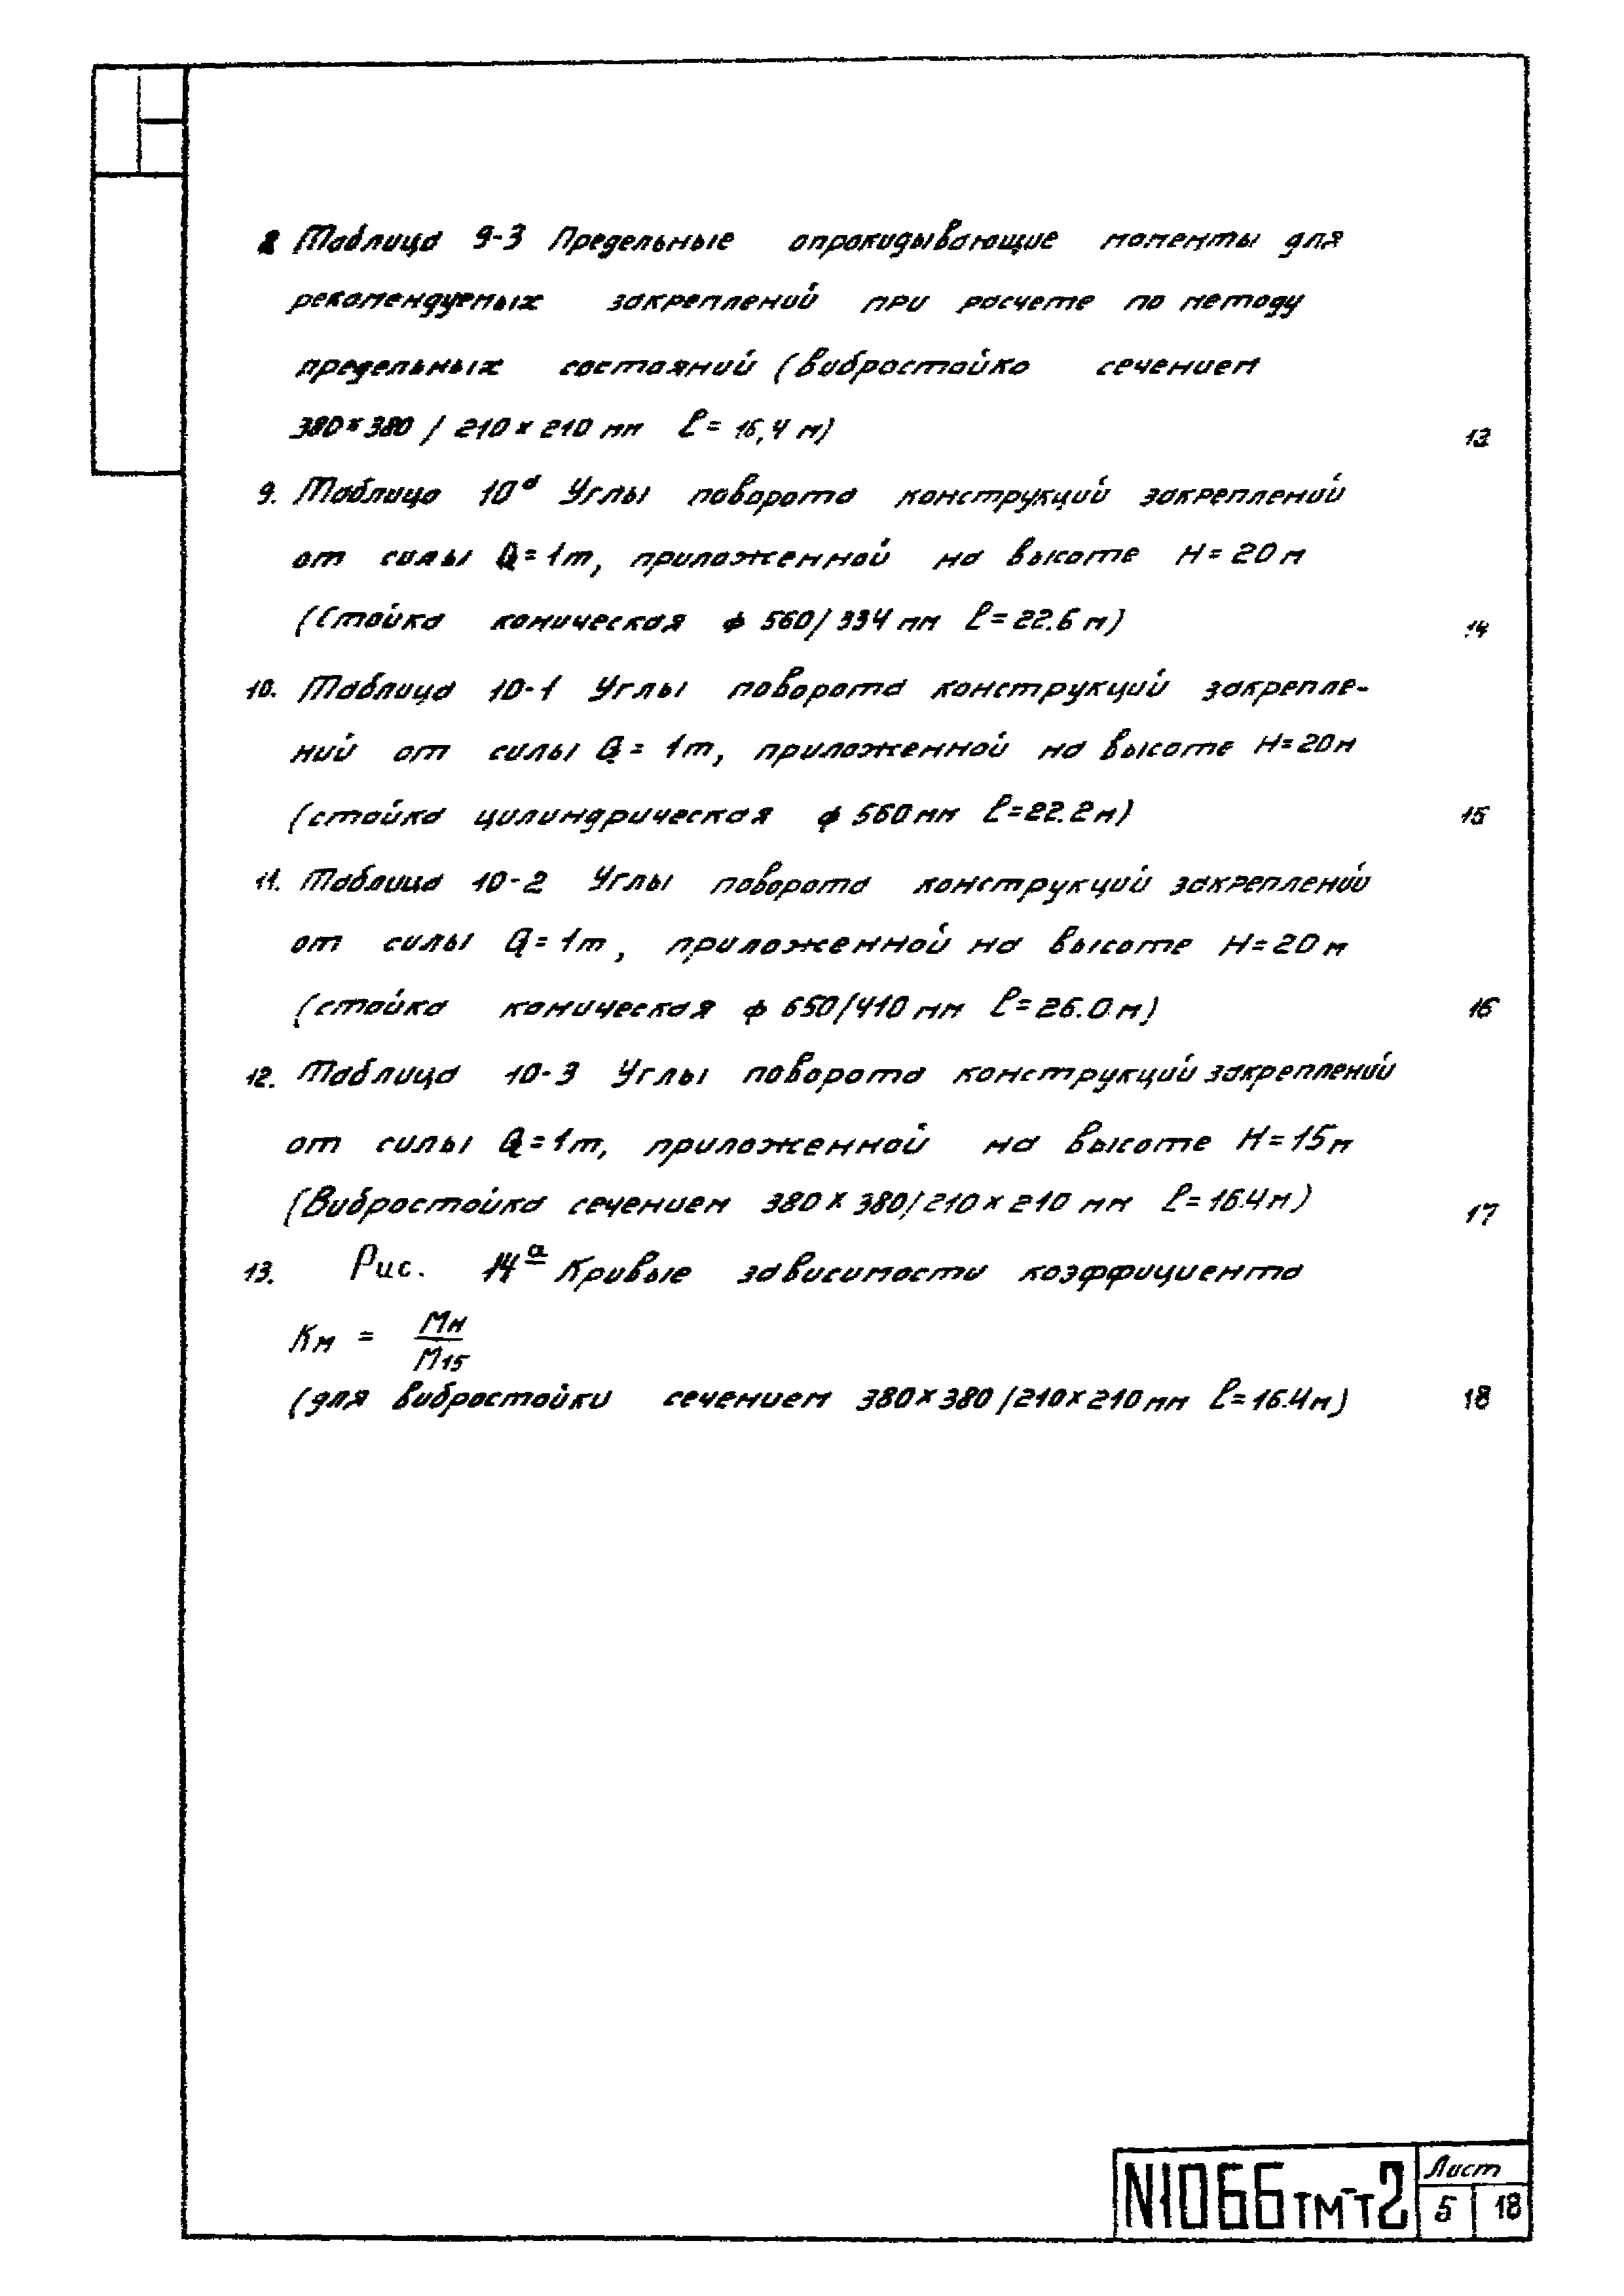 8 Таблица 9-3 Предельные опрокидывающие моменты для
рекомендуемых закреплений при расчете по методу
предельных состояний (вибростойка сечением
380×380 / 210×210 мм ℓ = 16,4 м) 13
9. Таблица 10ᵃ Углы поворота конструкций закреплений
от силы Q = 1т, приложенной на высоте H = 20 м
(Стойка коническая ф 560/334 мм ℓ = 22.6 м) 14
10. Таблица 10-1 Углы поворота конструкций закрепле-
ний от силы Q = 1т, приложенной на высоте H=20м
(стойка цилиндрическая ф 560 мм ℓ=22.2м) 15
11. Таблица 10-2 Углы поворота конструкций закреплений
от силы Q = 1т, приложенной на высоте H=20 м
(стойка коническая ф 650/410 мм ℓ = 26.0 м) 16
12. Таблица 10-3 Углы поворота конструкций закреплений
от силы Q = 1т, приложенной на высоте H = 15 м
(Вибростойка сечением 380×380/210×210 мм ℓ = 16.4 м) 17
13. Рис. 14ᵃ Кривые зависимости коэффициента
Kм = Mн / M15
(для вибростойки сечением 380×380/210×210 мм ℓ = 16.4 м) 18
N1066тм-т2
Лист
5 18